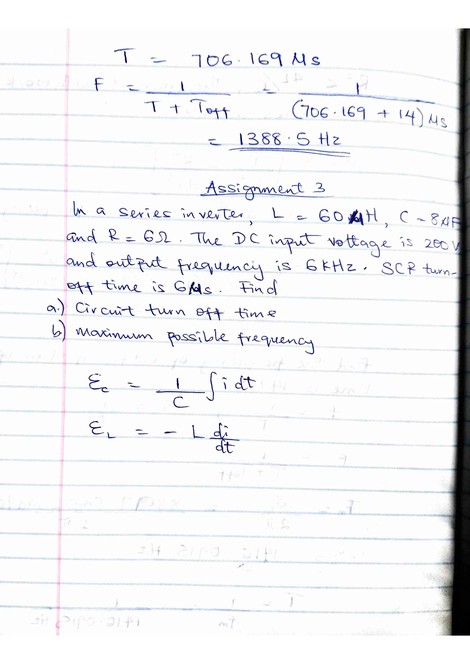 T = 706.169 Ms
F = 1 / (T + Toff) = 1 / (706.169 + 14) Ms
= 1388.5 Hz
Assignment 3
In a series inverter, L = 60 µH, C = 8µF
and R = 6Ω. The DC input voltage is 200V
and output frequency is 6KHz. SCR turn-
off time is 6µs. Find
a.) Circuit turn off time
b) maximum possible frequency
Ec = 1/C ∫ i dt
EL = - L di/dt